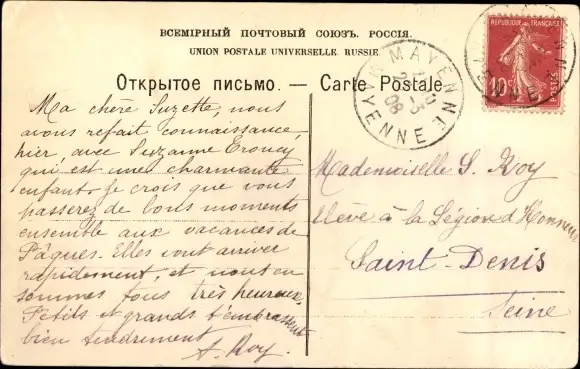 ВСЕМІРНЫЙ ПОЧТОВЫЙ СОЮЗЪ. РОССІЯ.
UNION POSTALE UNIVERSELLE. RUSSIE.
Открытое письмо. — Carte Postale
REPUBLIQUE FRANÇAISE
10c
POSTES
MAYENNE
MAYENNE
08
Ma chère Suzette, nous
avons refait connaissance,
hier, avec Suzanne
qui est une charmante
enfant. Je crois que vous
passerez de bons moments
ensemble aux vacances de
Pâques. Elles vont arriver
rapidement, et nous en
sommes tous très heureux.
Petits et grands t'embrassent
bien tendrement
A. Roy.
Mademoiselle S. Roy
élève à la Légion d'Honneur
Saint-Denis
Seine